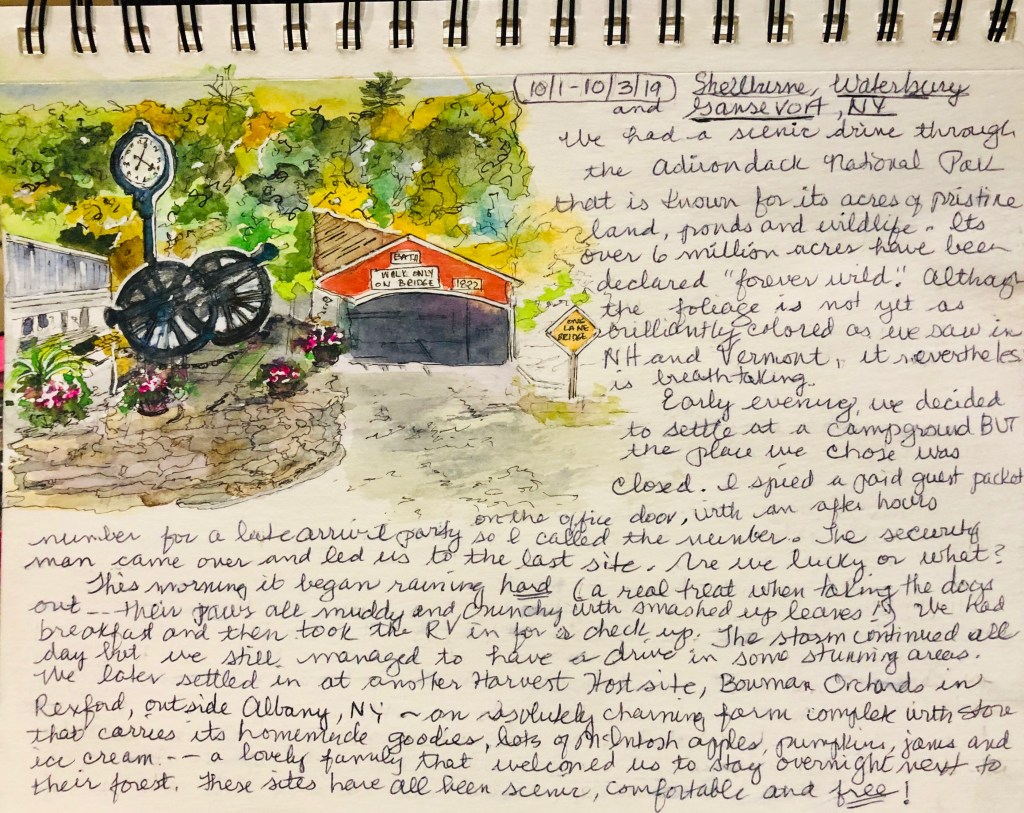 10/1-10/3/19 Shelburne, Waterbury
and Gansevort, NY
We had a scenic drive through
the Adirondack National Park
that is known for its acres of pristine
land, ponds and wildlife. Its
over 6 million acres have been
declared "forever wild". Although
the foliage is not yet as
brilliantly colored as we saw in
NH and Vermont, it nevertheless
is breathtaking.
Early evening, we decided
to settle at a campground BUT
the place we chose was
closed. I spied a paid guest packet
on the office door, with an after hours
number for a late arrival party so I called the number. The security
man came over and led us to the last site. Are we lucky or what?
This morning it began raining hard (a real treat when taking the dogs
out -- their paws all muddy and crunchy with smashed up leaves!) We had
breakfast and then took the RV in for a check up. The storm continued all
day but we still managed to have a drive in some stunning areas.
We later settled in at another Harvest Host site, Bowman Orchards in
Rexford, outside Albany, NY ~ an absolutely charming farm complex with store
that carries its homemade goodies, lots of McIntosh apples, pumpkins, jams and
ice cream -- a lovely family that welcomed us to stay overnight next to
their forest. These sites have all been scenic, comfortable and free!
BATH
WALK ONLY
ON BRIDGE
1832
ONE
LANE
BRIDGE